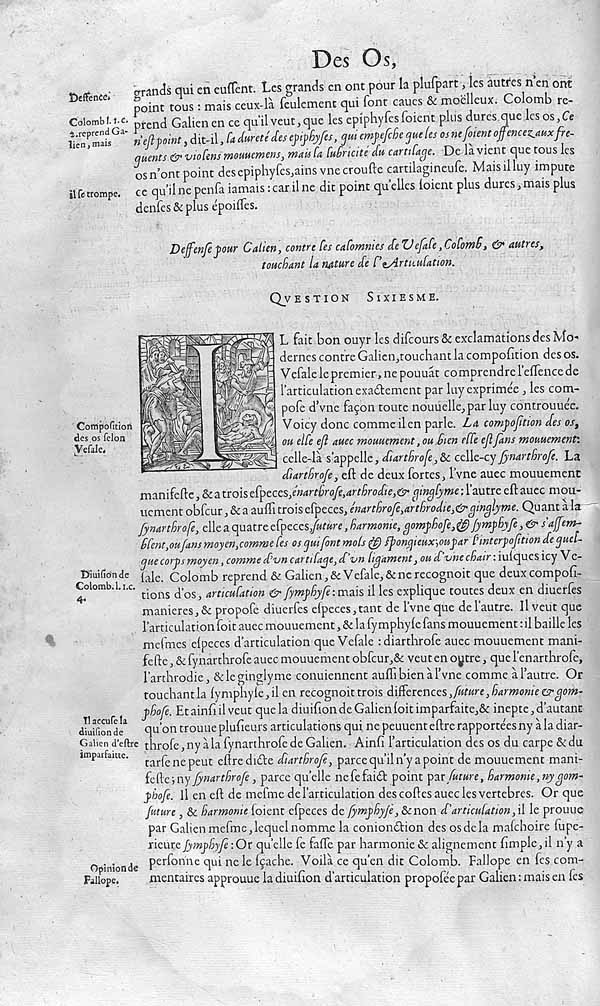 Des Os,
Deffence.
grands qui en euſſent. Les grands en ont pour la pluſpart, les autres n'en ont
point tous : mais ceux-là ſeulement qui ſont caues & moëlleux. Colomb re-
Colomb l. 1. c.
2. reprend Ga-
lien, mais
prend Galien en ce qu'il veut, que les epiphyſes ſoient plus dures que les os, Ce
n'eſt point, dit-il, ſa dureté des epiphyſes, qui empeſche que les os ne ſoient offencez aux fre-
quents & violens mouuemens, mais ſa ſubricité du cartilage. De là vient que tous les
os n'ont point des epiphyſes, ains vne crouſte cartilagineuſe. Mais il luy impute
il ſe trompe.
ce qu'il ne penſa iamais : car il ne dit point qu'elles ſoient plus dures, mais plus
denſes & plus époiſſes.
Deffenſe pour Galien, contre ſes calomnies de Veſale, Colomb, & autres,
touchant la nature de l'Articulation.
QVESTION SIXIESME.
IL fait bon ouyr les diſcours & exclamations des Mo-
dernes contre Galien, touchant la compoſition des os.
Veſale le premier, ne pouuãt comprendre l'eſſence de
l'articulation exactement par luy exprimée, les com-
poſe d'vne façon toute nouuelle, par luy controuuée.
Compoſition
des os ſelon
Veſale.
Voicy donc comme il en parle. La compoſition des os,
ou elle eſt auec mouuement, ou bien elle eſt ſans mouuement:
celle-là s'appelle, diarthroſe, & celle-cy ſynarthroſe. La
diarthroſe, eſt de deux ſortes, l'vne auec mouuement
manifeſte, & a trois eſpeces, énarthroſe, arthrodie, & ginglyme: l'autre eſt auec mou-
uement obſcur, & a auſſi trois eſpeces, énarthroſe, arthrodie, & ginglyme. Quant à la
ſynarthroſe, elle a quatre eſpeces, ſuture, harmonie, gomphoſe, & ſymphyſe, & s'aſſem-
blent, ou ſans moyen, comme les os qui ſont mols & ſpongieux; ou par l'interpoſition de quel-
que corps moyen, comme d'vn cartilage, d'vn ligament, ou d'vne chair: iuſques icy Ve-
Diuiſion de
Colomb. l. 1. c.
4.
ſale. Colomb reprend & Galien, & Veſale, & ne recognoit que deux compoſi-
tions d'os, articulation & ſymphyſe: mais il les explique toutes deux en diuerſes
manieres, & propoſe diuerſes eſpeces, tant de l'vne que de l'autre. Il veut que
l'articulation ſoit auec mouuement, & la ſymphyſe ſans mouuement: il baille les
meſmes eſpeces d'articulation que Veſale: diarthroſe auec mouuement mani-
feſte, & ſynarthroſe auec mouuement obſcur, & veut en outre, que l'enarthroſe,
l'arthrodie, & le ginglyme conuiennent auſſi bien à l'vne comme à l'autre. Or
touchant la ſymphyſe, il en recognoit trois differences, ſuture, harmonie & gom-
Il accuſe la
diuiſion de
Galien d'eſtre
imparfaitte.
phoſe. Et ainſi il veut que la diuiſion de Galien ſoit imparfaite, & inepte, d'autant
qu'on trouue pluſieurs articulations qui ne peuuent eſtre rapportées ny à la diar-
throſe, ny à la ſynarthroſe de Galien. Ainſi l'articulation des os du carpe & du
tarſe ne peut eſtre dicte diarthroſe, parce qu'il n'y a point de mouuement mani-
feſte; ny ſynarthroſe, parce qu'elle ne ſe faict point par ſuture, harmonie, ny gom-
phoſe. Il en eſt de meſme de l'articulation des coſtes auec les vertebres. Or que
ſuture, & harmonie ſoient eſpeces de ſymphyſe, & non d'articulation, il le prouue
par Galien meſme, lequel nomme la conionction des os de la maſchoire ſupe-
rieure ſymphyſe: Or qu'elle ſe faſſe par harmonie & alignement ſimple, il n'y a
perſonne qui ne le ſçache. Voilà ce qu'en dit Colomb. Fallope en ſes com-
Opinion de
Fallope.
mentaires approuue la diuiſion d'articulation propoſée par Galien: mais en ſes